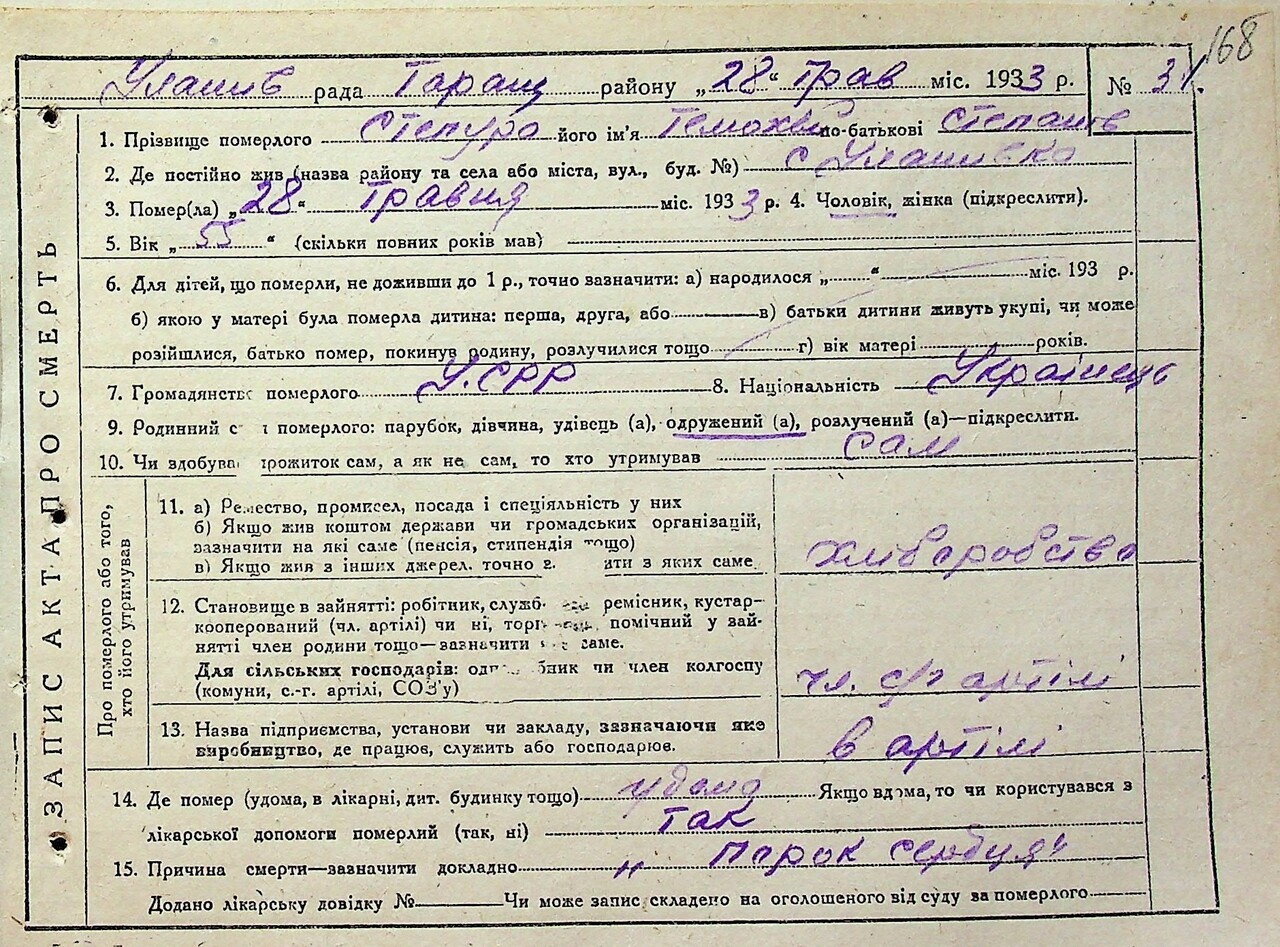 168
Уланив рада Таращ району „28“ Трав міс. 1933 р. № 31.
ЗАПИС АКТА ПРО СМЕРТЬ
1. Прізвище померлого Степура його ім'я по-батькові Степанів
2. Де постійно жив (назва району та села або міста, вул., буд. №) с Уланивка
3. Помер(ла) „28“ Травня міс. 1933 р. 4. Чоловік, жінка (підкреслити).
5. Вік „55“ (скільки повних років мав)
6. Для дітей, що померли, не доживши до 1 р., точно зазначити: а) народилося „ “ міс. 193 р.
б) якою у матері була померла дитина: перша, друга, або в) батьки дитини живуть укупі, чи може
розійшлися, батько помер, покинув родину, розлучилися тощо г) вік матері років.
7. Громадянство померлого У.СРР 8. Національність Українець
9. Родинний с померлого: парубок, дівчина, удівець (а), одружений (а), розлучений (а)—підкреслити.
10. Чи здобував прожиток сам, а як не сам, то хто утримував сам
Про померлого або того,
хто його утримував
11. а) Ремество, промисел, посада і спеціяльність у них
б) Якщо жив коштом держави чи громадських організацій,
зазначити на які саме (пенсія, стипендія тощо)
в) Якщо жив з інших джерел, точно з ати з яких саме
хлиборобство
12. Становище в зайнятті: робітник, служб ремісник, кустар-
кооперований (чл. артілі) чи ні, торг помічний у зай-
нятті член родини тощо—зазначити саме.
Для сільських господарів: одноосібник чи член колгоспу
(комуни, с.-г. артілі, СОЗ'у)
чл. с/г артілі
13. Назва підприємства, установи чи закладу, зазначаючи яке
виробництво, де працює, служить або господарює.
в артілі
14. Де помер (удома, в лікарні, дит. будинку тощо) удома Якщо вдома, то чи користувався з
лікарської допомоги померлий (так, ні) Так
15. Причина смерти—зазначити докладно Порок
Додано лікарську довідку № Чи може запис складено на оголошеного від суду за померлого